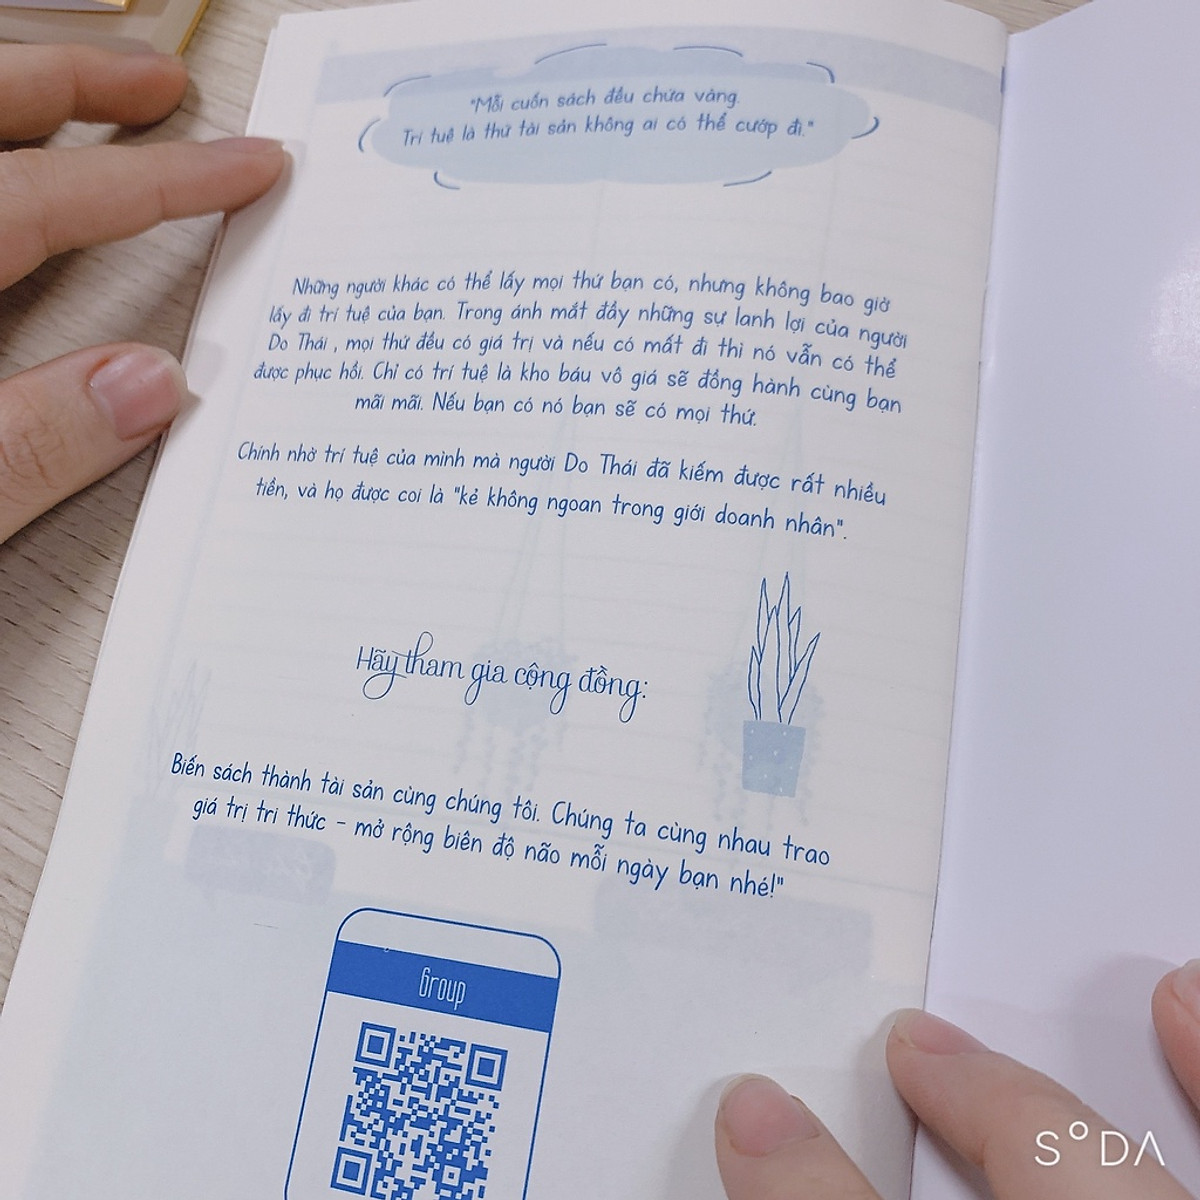 "Mỗi cuốn sách đều chứa vàng.
Trí tuệ là thứ tài sản không ai có thể cướp đi."
Những người khác có thể lấy mọi thứ bạn có, nhưng không bao giờ
lấy đi trí tuệ của bạn. Trong ánh mắt đầy những sự lanh lợi của người
Do Thái , mọi thứ đều có giá trị và nếu có mất đi thì nó vẫn có thể
được phục hồi. Chỉ có trí tuệ là kho báu vô giá sẽ đồng hành cùng bạn
mãi mãi. Nếu bạn có nó bạn sẽ có mọi thứ.
Chính nhờ trí tuệ của mình mà người Do Thái đã kiếm được rất nhiều
tiền, và họ được coi là "kẻ không ngoan trong giới doanh nhân".
Hãy tham gia cộng đồng:
Biến sách thành tài sản cùng chúng tôi. Chúng ta cùng nhau trao
giá trị tri thức - mở rộng biên độ não mỗi ngày bạn nhé!"
Group
SODA